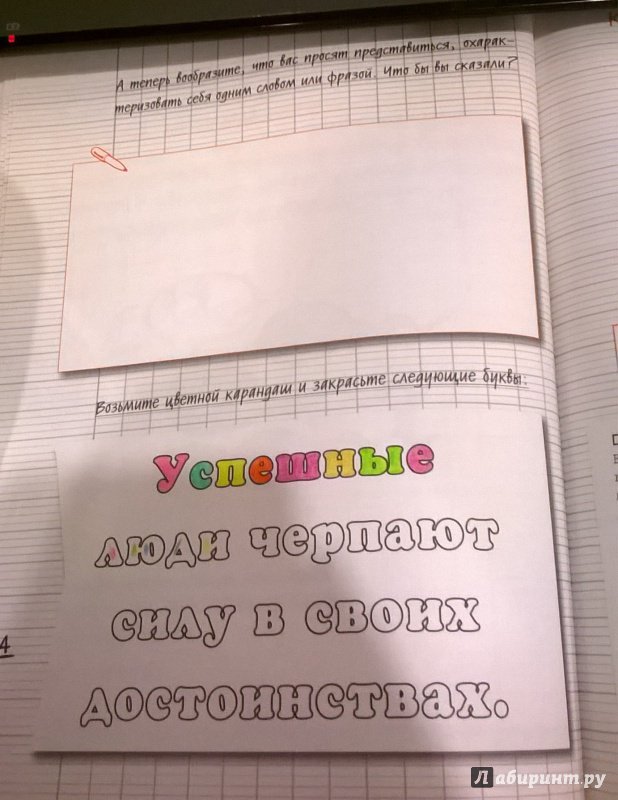 А теперь вообразите, что вас просят представиться, охарак-
теризовать себя одним словом или фразой. Что бы вы сказали?
Возьмите цветной карандаш и закрасьте следующие буквы.
Успешные
люди черпают
силу в своих
достоинствах.
4
Лабиринт.ру